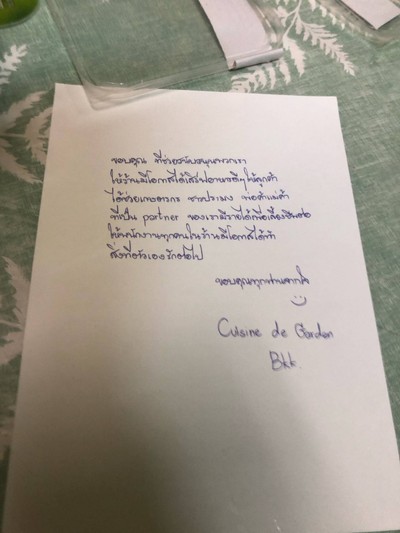 ขอบคุณ ที่ช่วยสนับสนุนพวกเรา
ให้ร้านมีโอกาสได้เสิร์ฟอาหารดีๆให้ลูกค้า
ได้ช่วยเกษตรกร ชาวประมง พ่อค้าแม่ค้า
ที่เป็น partner ของเรามีรายได้เพื่อเลี้ยงชีพต่อ
ให้พนักงานทุกคนในร้านมีโอกาสได้ทำ
สิ่งที่ตัวเองรักต่อไป
ขอบคุณทุกท่านจากใจ
Cuisine de Garden
Bkk.